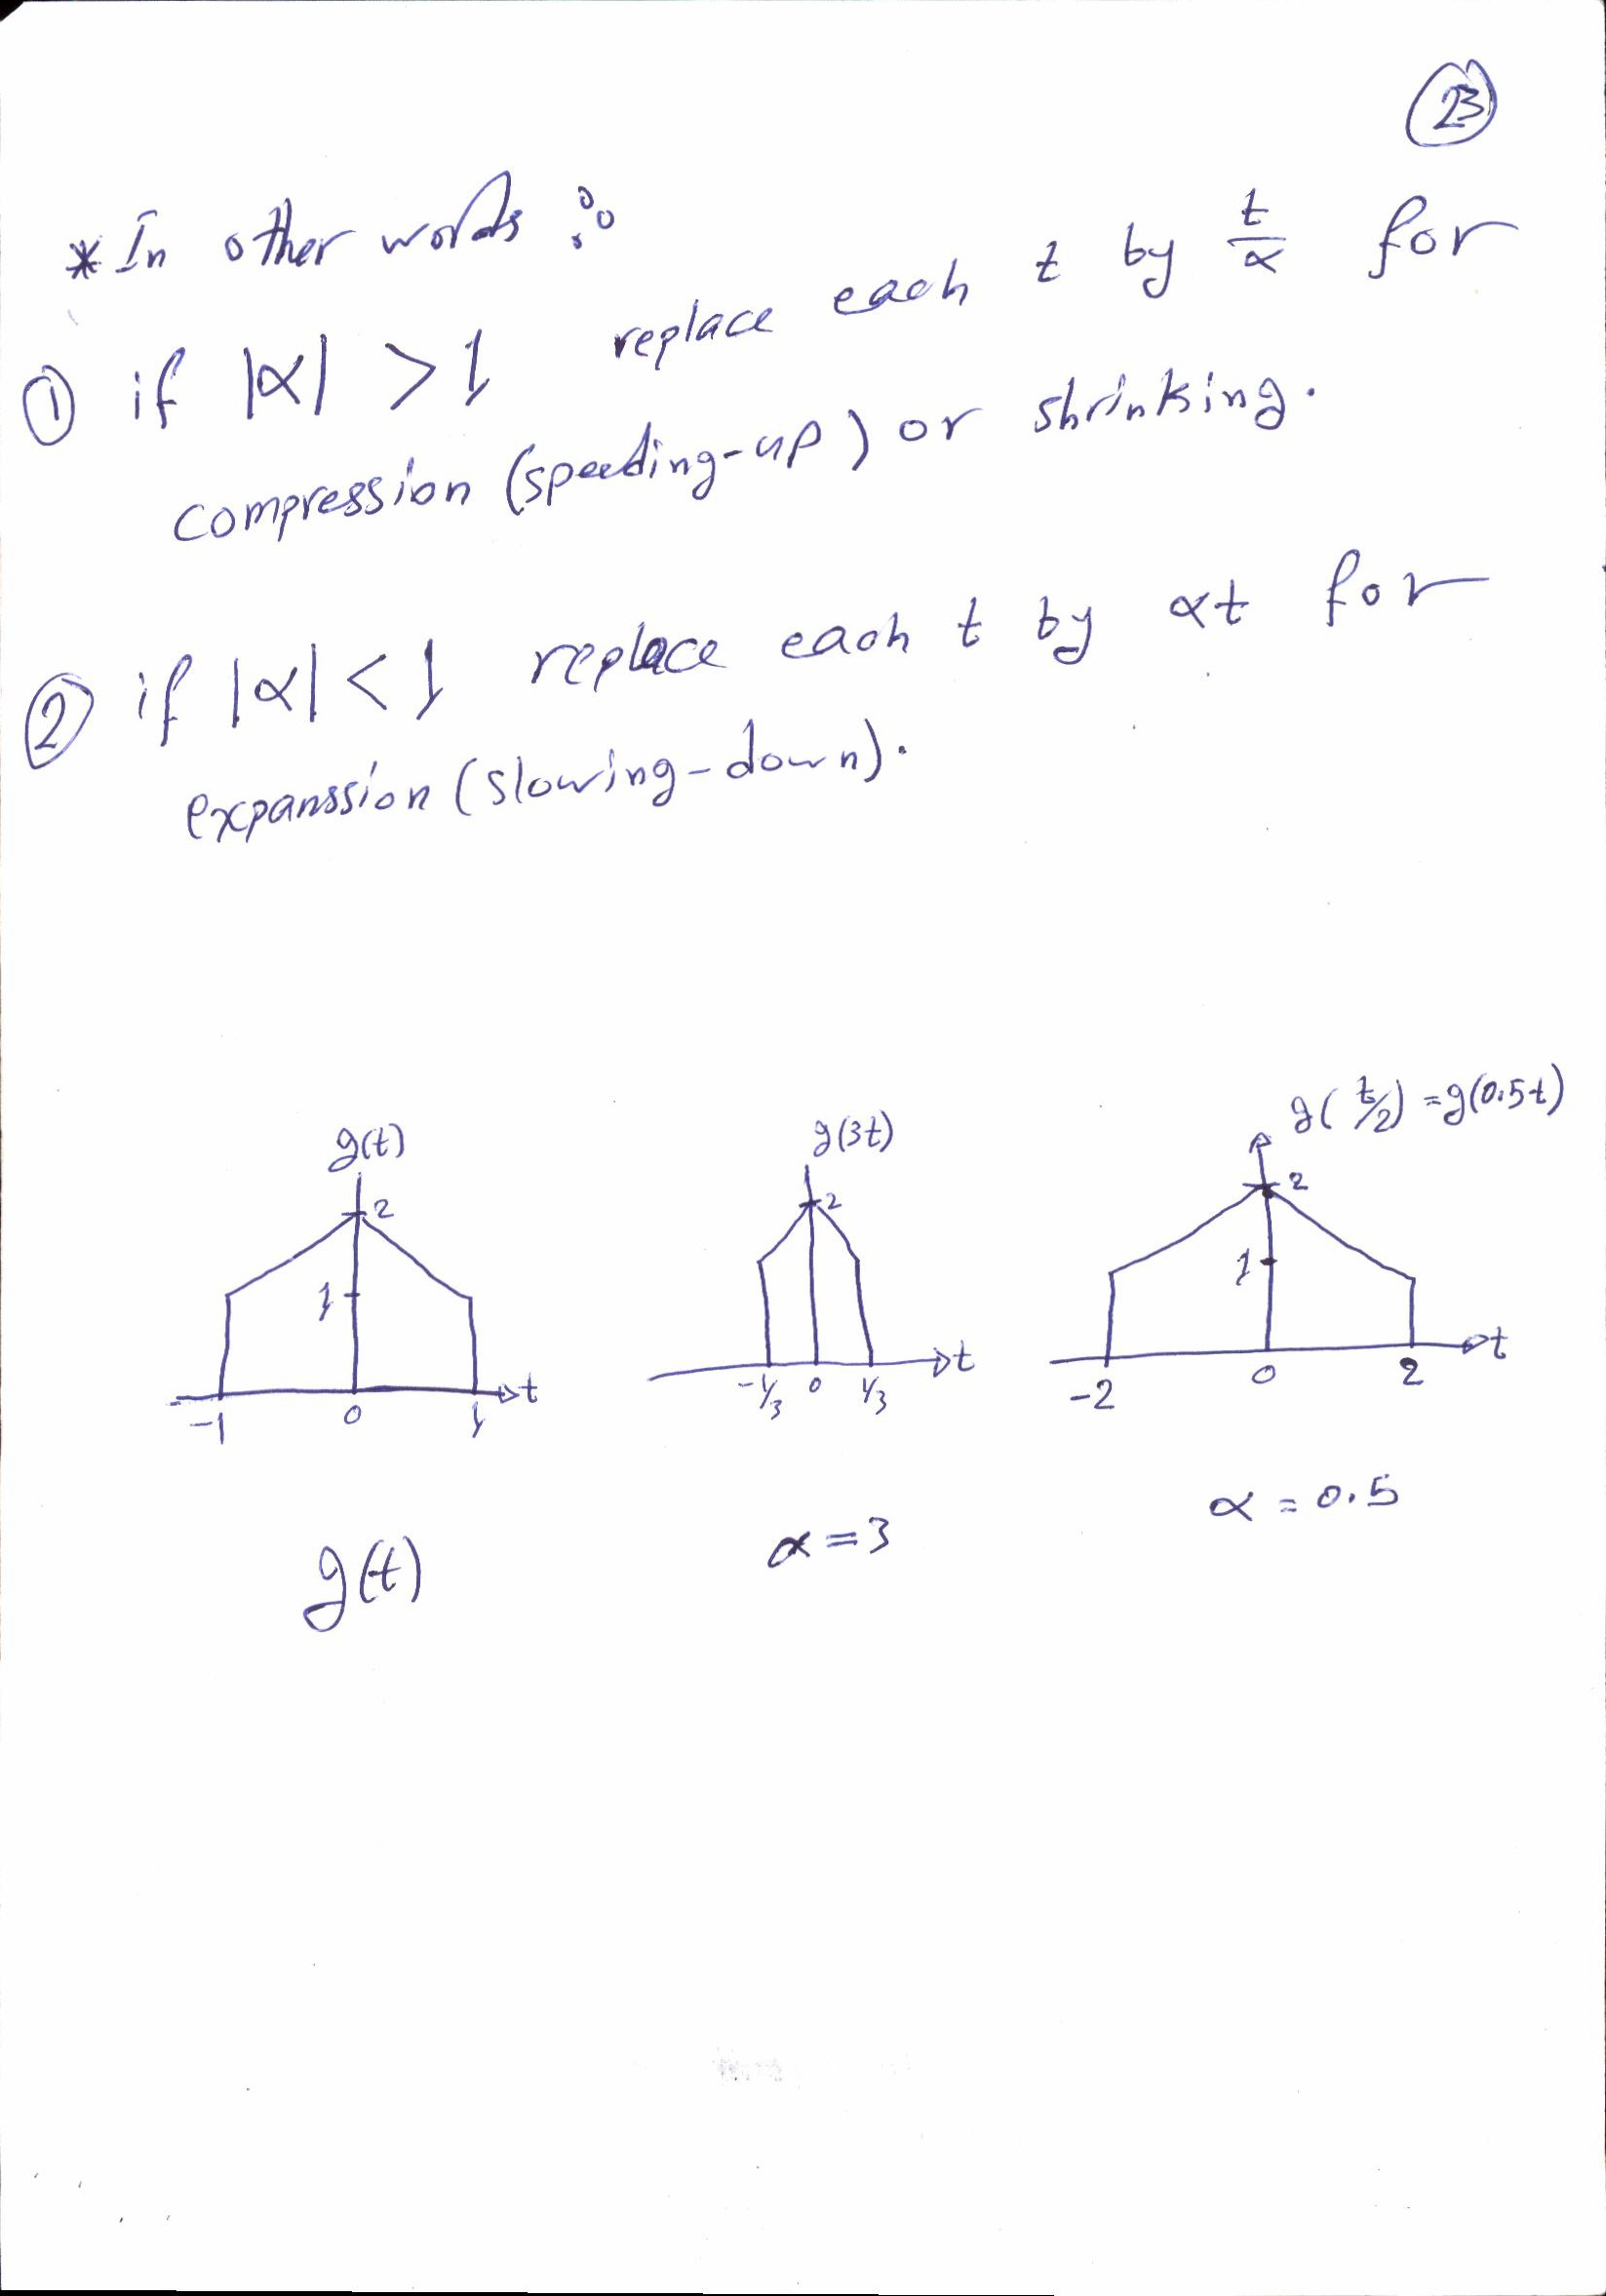 23
* In other words :
① if |α| > 1 replace each t by t/α for
compression (speeding-up) or shrinking.
② if |α| < 1 replace each t by αt for
expanssion (slowing-down).
g(t) g(3t) g(t/2) = g(0.5t)
2 2 2
1 1
t t t
-1 0 1 -1/3 0 1/3 -2 0 2
g(t) α = 3 α = 0.5